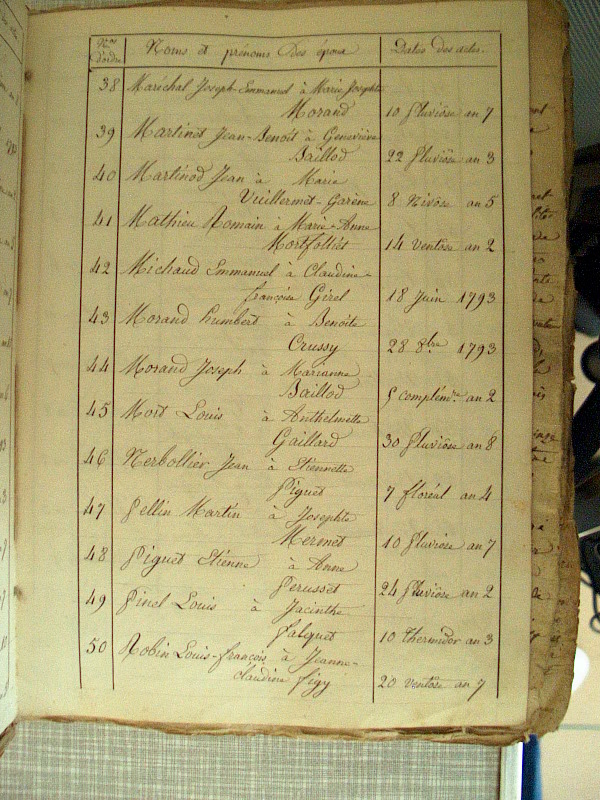 Nos d'ordre Noms et prénoms des époux Dates des actes.
38 Maréchal Joseph-Emmanuel à Marie Josephte
Morand 10 Pluviôse an 7
39 Martinet Jean-Benoît à Geneviève
Baillod 22 Pluviôse an 3
40 Martinod Jean à Marie
Vuillermet-Garène 8 Nivôse an 5
41 Mathieu Romain à Marie-Anne
Montfolliet 14 Ventôse an 2
42 Michaud Emmanuel à Claudine-
françoise Girel 18 Juin 1793
43 Morand humbert à Benoîte
Crussy 28 8bre 1793
44 Morand Joseph à Marianne
Baillod 5 complémre an 2
45 Mort Louis à Anthelmette
Gaillard 30 Pluviôse an 8
46 Nerbollier Jean à Etiennette
Piguet 7 floréal an 4
47 Pellin Martin à Josephte
Mermet 10 Pluviôse an 7
48 Piguet Etienne à Anne
Perusset 24 Pluviôse an 2
49 Pinel Louis à Jacinthe
falquet 10 Thermidor an 3
50 Robin Louis-françois à Jeanne-
claudine figy 20 ventôse an 7